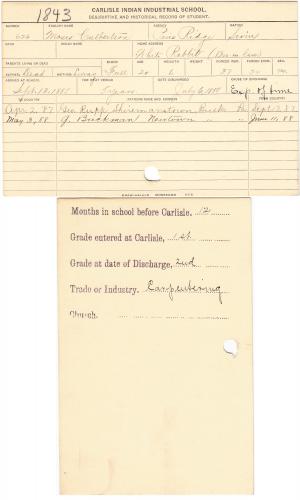 1843
CARLISLE INDIAN INDUSTRIAL SCHOOL.
DESCRIPTIVE AND HISTORICAL RECORD OF STUDENT.
NUMBER ENGLISH NAME AGENCY NATION
Moses Culbertson Pine Ridge Sioux
HOME ADDRESS
White Rabbit
PARENTS LIVING OR DEAD BLOOD AGE HEIGHT WEIGHT FORCED INSP. FORCED EXPR. SEX
FATHER, Dead MOTHER, Living Full 20 37 M.
ARRIVED AT SCHOOL FOR WHAT PERIOD DATE DISCHARGED CAUSE OF DISCHARGE
5 years July 6, 1888 Exp. of time
TO COUNTRY PATRONS NAME AND ADDRESS FROM COUNTRY
Apr 2, 87 Geo. Rupp Shiremanstown Pa Sept 2, 87
May 3, 88 G. Brickman Newtown " " June 11, 88
Months in school before Carlisle, 12
Grade entered at Carlisle, 1st
Grade at date of Discharge, 2nd
Trade or Industry. Carpentering
Church.